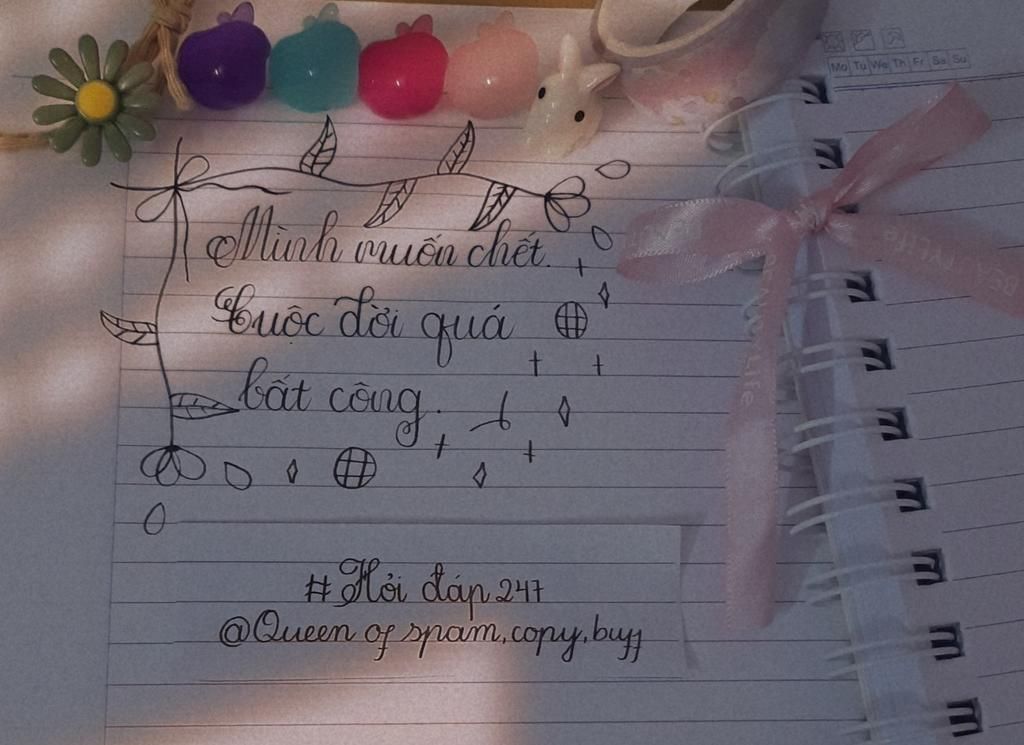 Mo Tu We Th Fr Sa Su
Mình muốn chết.
Cuộc đời quá
bất công.
#Hỏi đáp 247
@Queen of spam, copy, buff